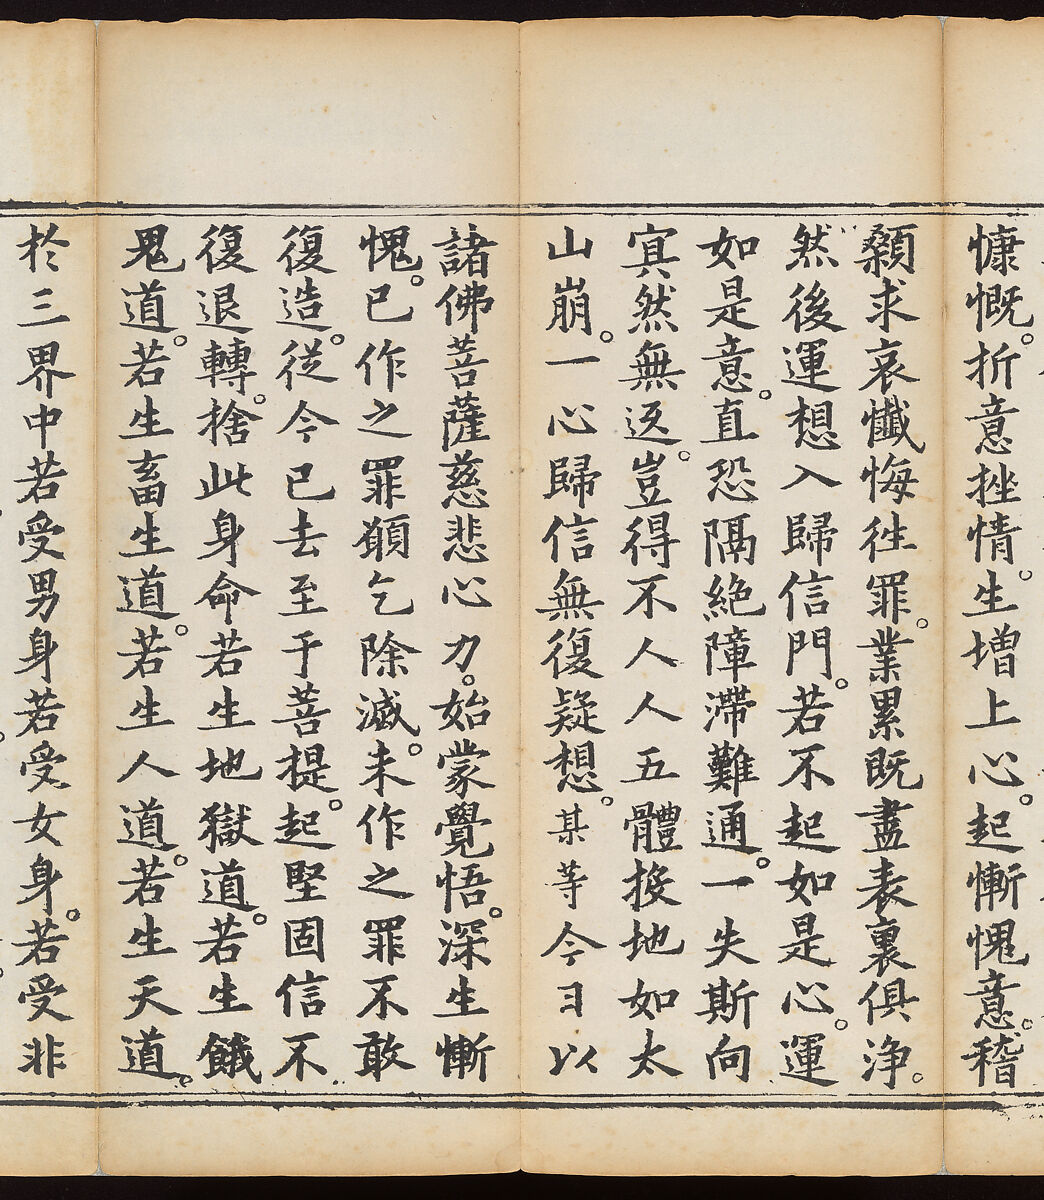 慷慨。折意挫情。生增上心。起慚愧意。稽
顙求哀懺悔往罪。業累既盡表裏俱淨。
然後運想入歸信門。若不起如是心。運
如是意。直恐隔絶障滯難通。一失斯向
寘然無返。豈得不人人五體投地如太
山崩。一心歸信無復疑想。某等今日以
諸佛菩薩慈悲心力。始蒙覺悟。深生慚
愧。已作之罪願乞除滅。未作之罪不敢
復造。從今已去至于菩提。起堅固信不
復退轉。捨此身命若生地獄道。若生餓
鬼道。若生畜生道。若生人道。若生天道。
於三界中若受男身若受女身。若受非